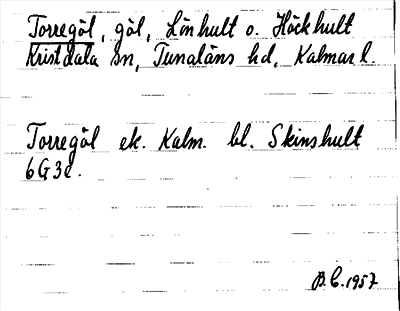 Torregöl, göl, Linhult o. Höckhult
Kristdala sn, Tunaläns hd, Kalmar l.
Torregöl ek. Kalm. bl. Skinshult
6G3c.
B.C. 1957